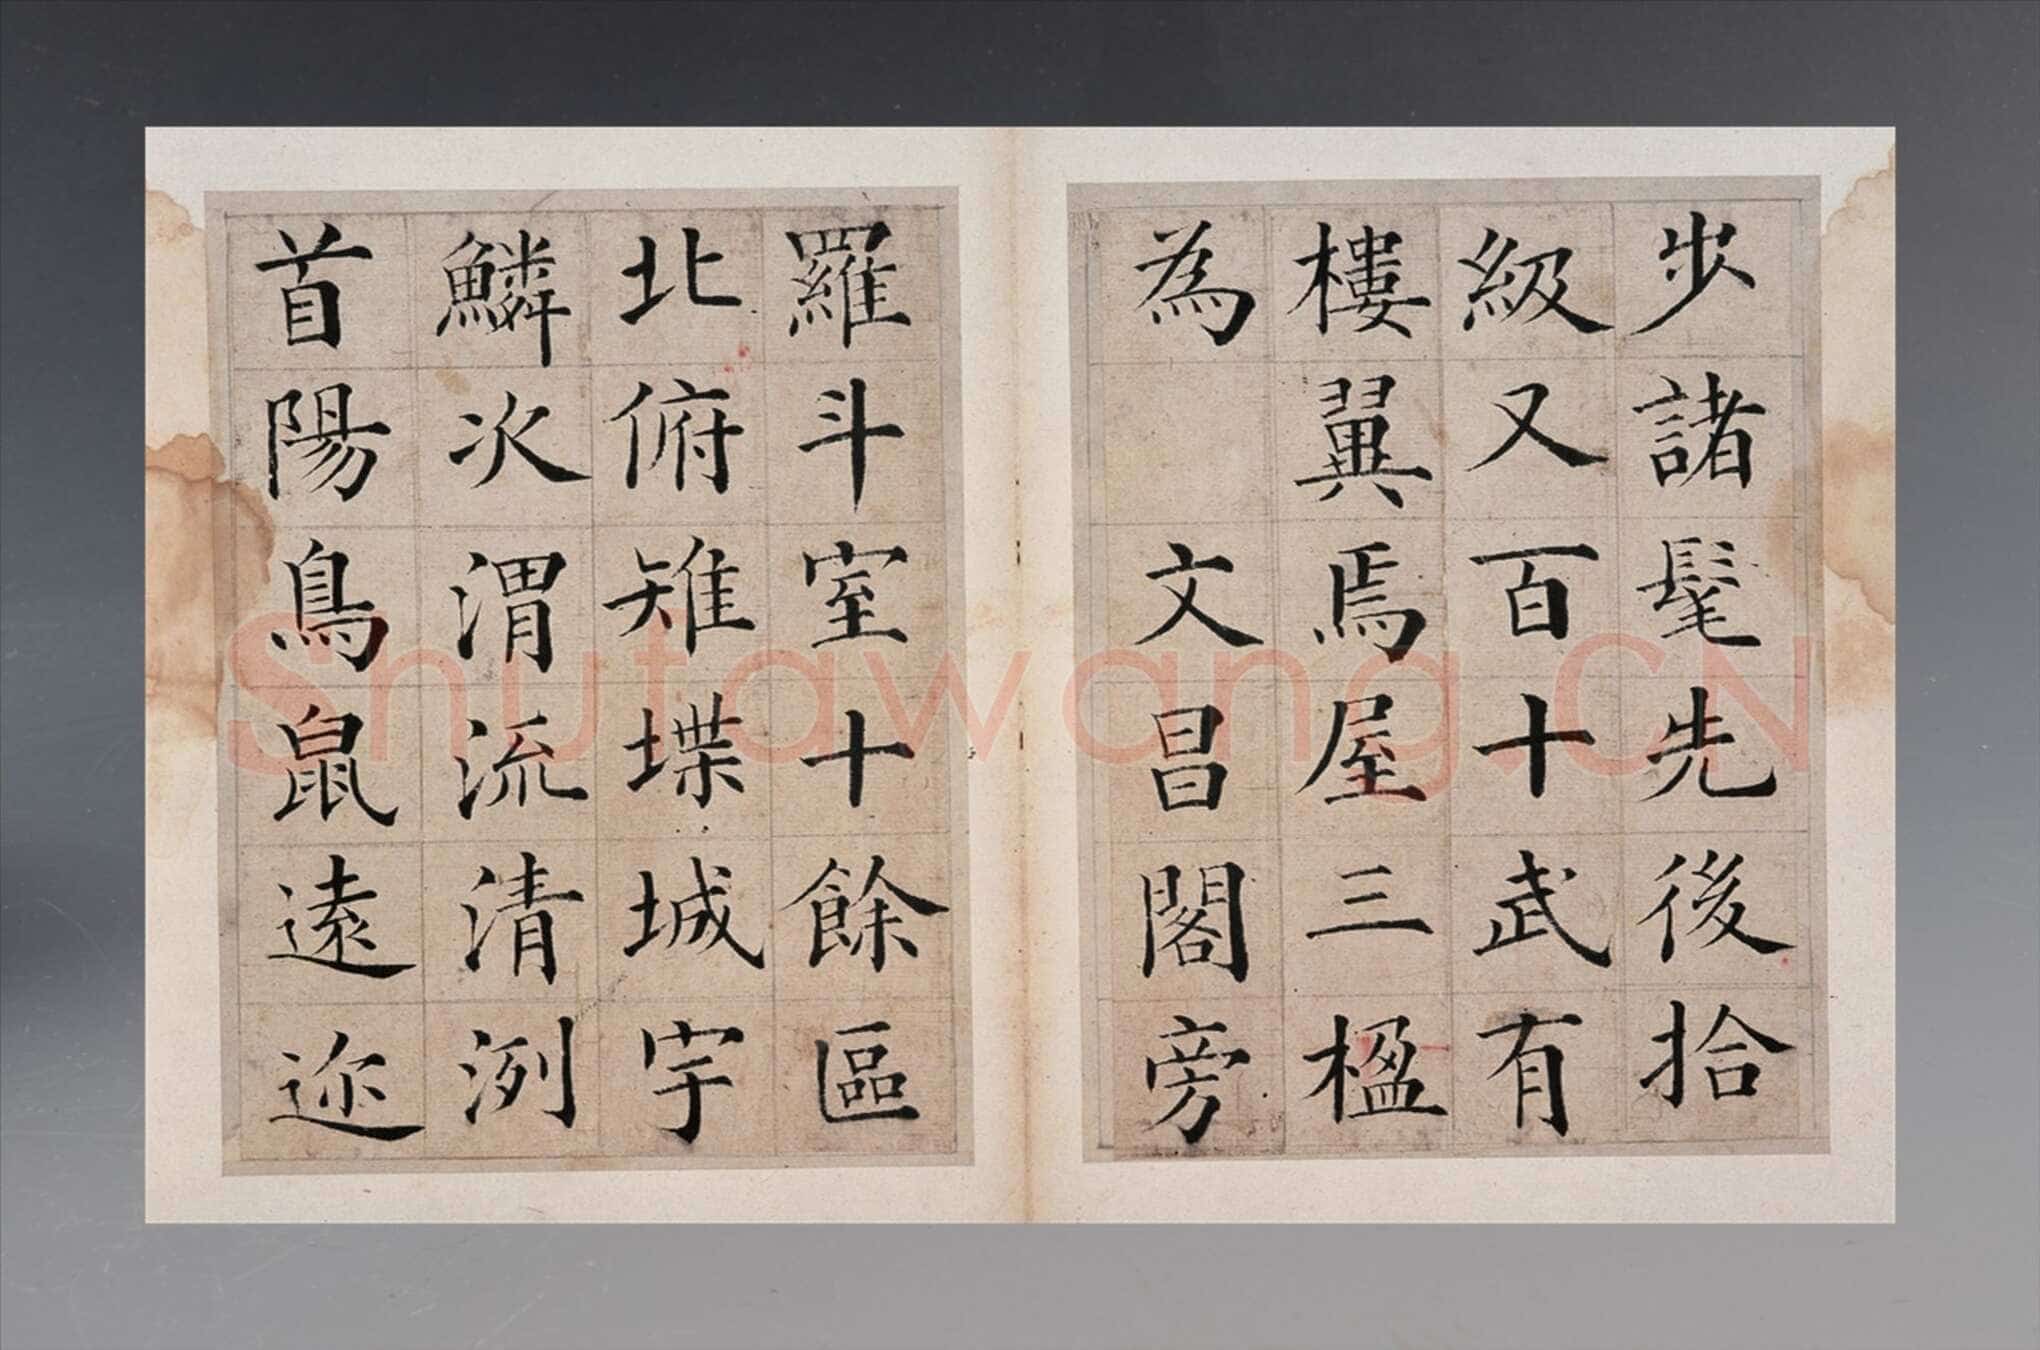 步諸髦先後拾
級又百十武有
樓翼焉屋三楹
為 文昌閣旁
羅斗室十餘區
北俯雉堞城宇
鱗次渭流清洌
首陽鳥鼠遠迩
Shufawang.CN